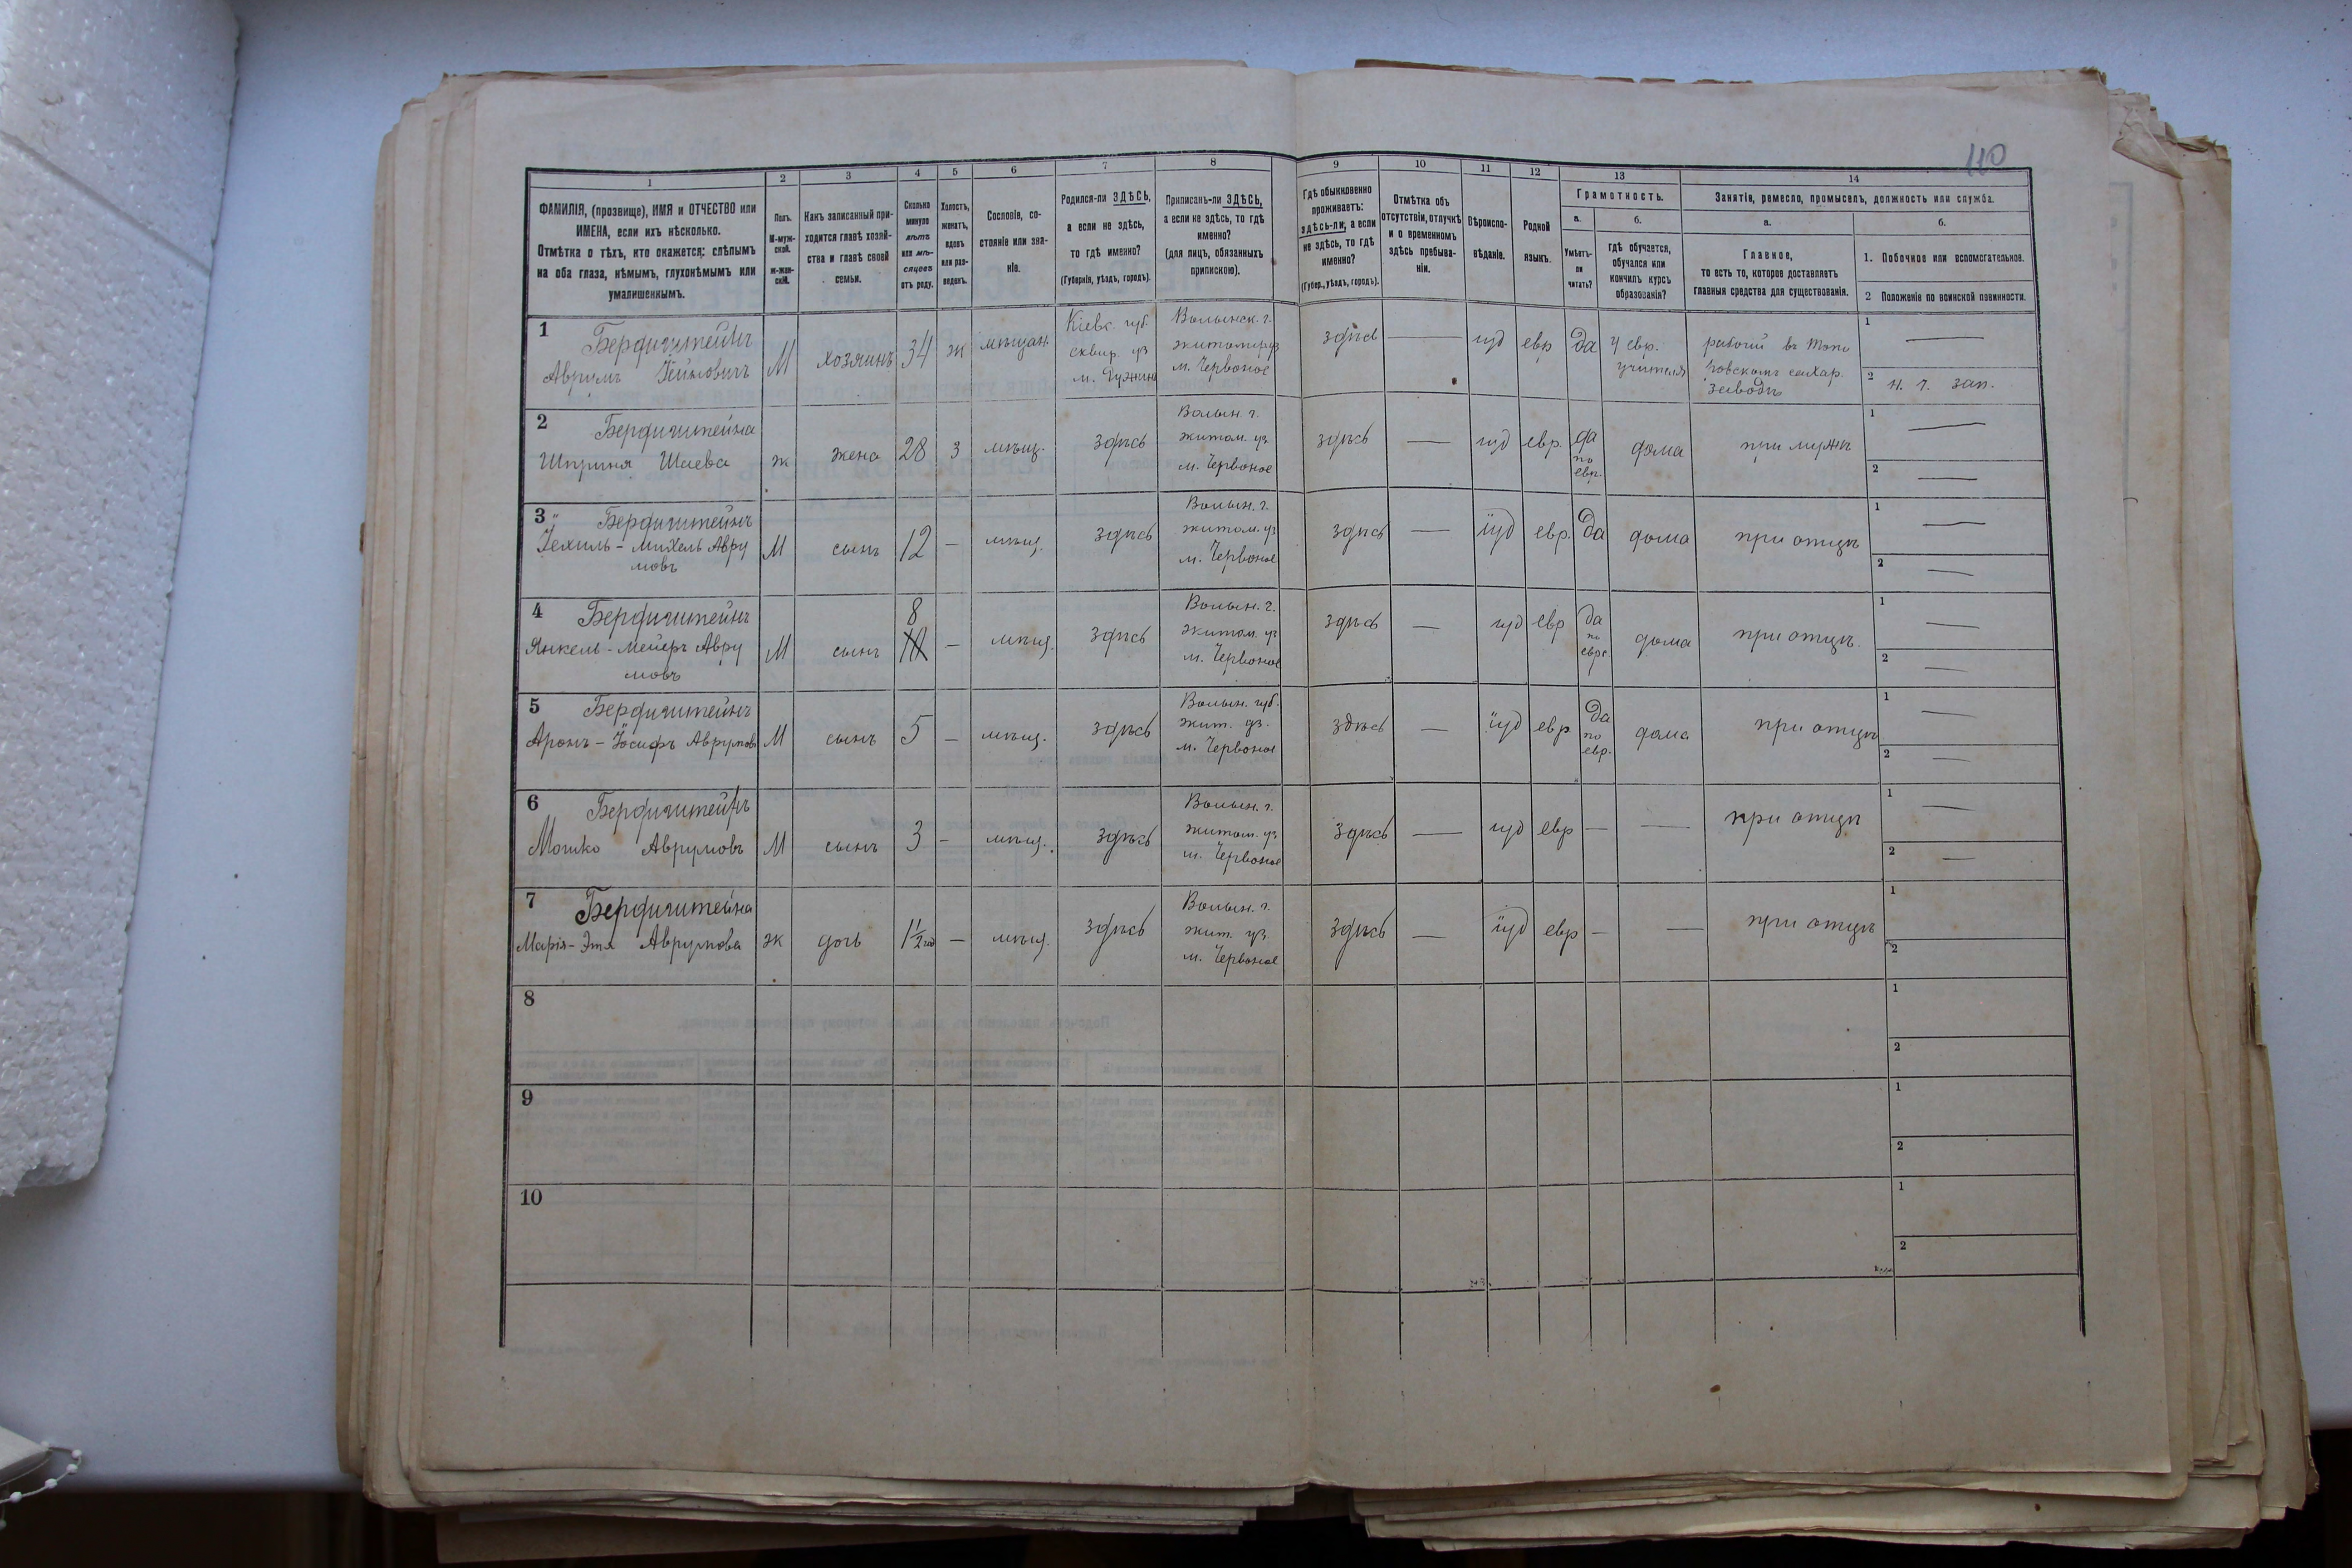 110
1 2 3 4 5 6 7 8 9 10 11 12 13 14
ФАМИЛІЯ, (прозвище), ИМЯ и ОТЧЕСТВО или
ИМЕНА, если ихъ нѣсколько.
Отмѣтка о тѣхъ, кто окажется: слѣпымъ
на оба глаза, нѣмымъ, глухонѣмымъ или
умалишеннымъ.
Полъ.
М-муж-
ской.
ж-жен-
скій.
Какъ записанный при-
ходится главѣ хозяй-
ства и главѣ своей
семьи.
Сколько
минуло
лѣтъ
или мѣ-
сяцевъ
отъ роду.
Холостъ,
женатъ,
вдовъ
или раз-
веденъ.
Сословіе, со-
стояніе или зва-
ніе.
Родился-ли ЗДѢСЬ,
а если не здѣсь,
то гдѣ именно?
(Губернія, уѣздъ, городъ).
Приписанъ-ли ЗДѢСЬ,
а если не здѣсь, то гдѣ
именно?
(для лицъ, обязанныхъ
припискою).
Гдѣ обыкновенно
проживаетъ:
здѣсь-ли, а если
не здѣсь, то гдѣ
именно?
(Губер., уѣздъ, городъ).
Отмѣтка объ
отсутствіи, отлучкѣ
и о временномъ
здѣсь пребыва-
ніи.
Вѣроиспо-
вѣданіе.
Родной
языкъ.
Грамотность.
а. б.
Умѣетъ-
ли
читать?
гдѣ обучается,
обучался или
кончилъ курсъ
образованія?
Занятія, ремесло, промыселъ, должность или служба.
а. б.
Главное,
то есть то, которое доставляетъ
главныя средства для существованія.
1. Побочное или вспомогательное.
2 Положеніе по воинской повинности.
1 Бердичштейнъ
Аврумъ
М хозяинъ 34 ж мѣщан.
Кіевс. губ.
сквир. уз
м.
Волынск. г.
житомир уз
м. Червоное
здѣсь — іуд евр да
у евр.
учителя
рабочій въ
сахар.
заводѣ
1 —
2 н. г. зап.
2 Бердичштейна
Шприня Шаева
ж жена 28 з мѣщ. здѣсь
Волын. г.
житом. уз
м. Червоное
здѣсь — іуд евр.
да
по
евр.
дома при мужѣ
1 —
2 —
3 Бердичштейнъ
Іехиль - Михель Авру
мовъ
М сынъ 12 — мѣщ. здѣсь
Волын. г.
житом. уз
м. Червоное
здѣсь — іуд евр. да дома при отцѣ
1 —
2 —
4 Бердичштейнъ
Янкель - Мейеръ Авру
мовъ
М сынъ 8 — мѣщ. здѣсь
Волын. г.
житом. уз
м. Червоное
здѣсь — іуд евр
да
по
евр
дома при отцѣ.
1 —
2 —
5 Бердичштейнъ
Аронъ - Іосифъ Аврумовъ
М сынъ 5 — мѣщ. здѣсь
Волын. губ.
жит. уз.
м. Червоное
здѣсь — іуд евр
да
по
евр.
дома при отцѣ
1 —
2 —
6 Бердичштейнъ
Мошко Аврумовъ
М сынъ 3 — мѣщ. здѣсь
Волын. г.
житом. уз
м. Червоное
здѣсь — іуд евр — — при отцѣ
1 —
2 —
7 Бердичштейна
Марія - Этя Аврумова
ж дочь 1½ год — мѣщ. здѣсь
Волын. г.
жит. уз.
м. Червоное
здѣсь — іуд евр — — при отцѣ
1
2
8
1
2
9
1
2
10
1
2